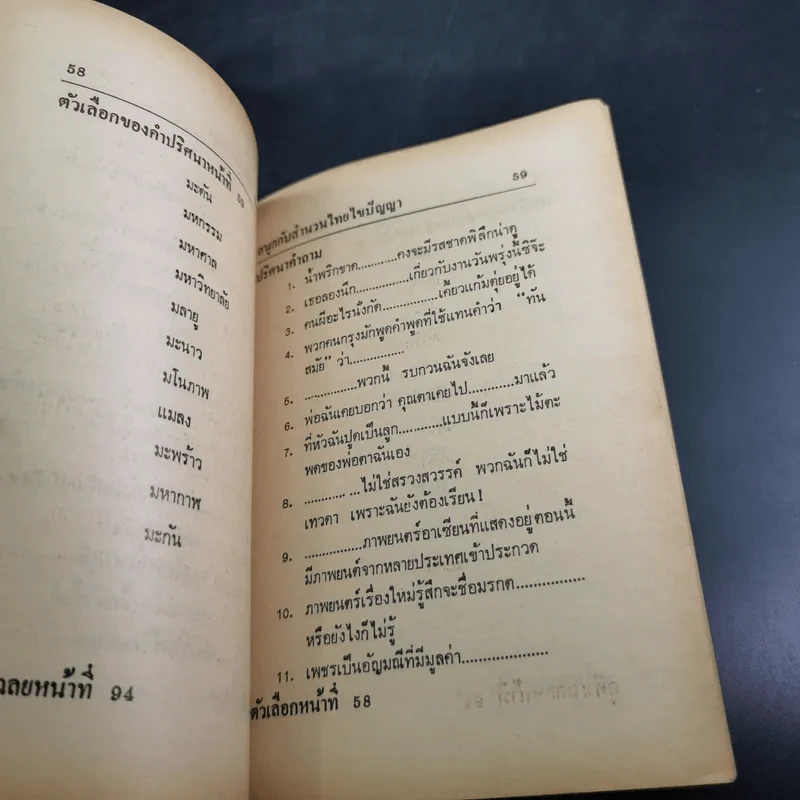 58
ตัวเลือกของคำปริศนาหน้าที่ 59
มะดัน
มหกรรม
มหาศาล
มหาวิทยาลัย
มลายู
มะนาว
มโนภาพ
แมลง
มะพร้าว
มหากาพ
มะกัน
ฉลยหน้าที่ 94
59
สนุกกับสำนวนไทยไขปัญญา
ปริศนาคำถาม
1. น้ำพริกขาด...........คงจะมีรสชาดพิลึกน่าดู
2. เธอลองนึก...............เกี่ยวกับงานวันพรุ่งนี้ซิจ๊ะ
3. คนผีอะไรนั่งกัด...............เคี้ยวแก้มตุ่ยอยู่ได้
4. พวกคนกรุงมักพูดคำพูดที่ใช้แทนคำว่า "ทัน
สมัย" ว่า...............
5. ...............พวกนี้ รบกวนฉันจังเลย
6. พ่อฉันเคยบอกว่า คุณตาเคยไป...........มาแล้ว
7. ที่หัวฉันปูดเป็นลูก...........แบบนี้ก็เพราะไม้ตะ
พดของพ่อตาฉันเอง
8. ........... ...ไม่ใช่สรวงสวรรค์ พวกฉันก็ไม่ใช่
เทวดา เพราะฉันยังต้องเรียน !
9. ...............ภาพยนตร์อาเซียนที่แสดงอยู่ตอนนี้
มีภาพยนต์จากหลายประเทศเข้าประกวด
10. ภาพยนตร์เรื่องใหม่รู้สึกจะชื่อมรกต...............
หรือยังไงก็ไม่รู้
11. เพชรเป็นอัญมณีที่มีมูลค่า...................
ตัวเลือกหน้าที่ 58